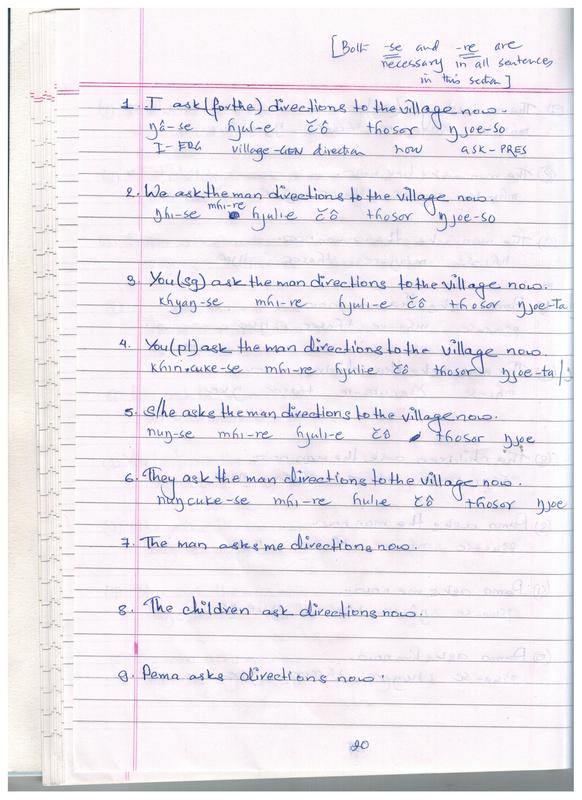 [Both -se and -re are
necessary in all sentences
in this section]
1. I ask (for the) directions to the village now.
ŋâ-se ɦjul-e čô thosor ŋjoe-so
I-ERG village-GEN direction now ask-PRES
2. We ask the man directions to the village now.
mɦi-re
ŋɦi-se ɦjulie čô thosor ŋjoe-so
3. You (sg) ask the man directions to the village now.
khyaŋ-se mɦi-re ɦjuli-e čô thosor ŋjoe-ta
4. You (pl) ask the man directions to the village now.
khin.cuke-se mɦi-re ɦjulie čô thosor ŋjoe-ta/
5. S/he asks the man directions to the village now.
nuŋ-se mɦi-re ɦjuli-e čô thosor ŋjoe
6. They ask the man directions to the village now.
nuŋcuke-se mɦi-re ɦulie čô thosor ŋjoe
7. The man asks me directions now.
8. The children ask directions now.
9. Pema asks directions now.
20